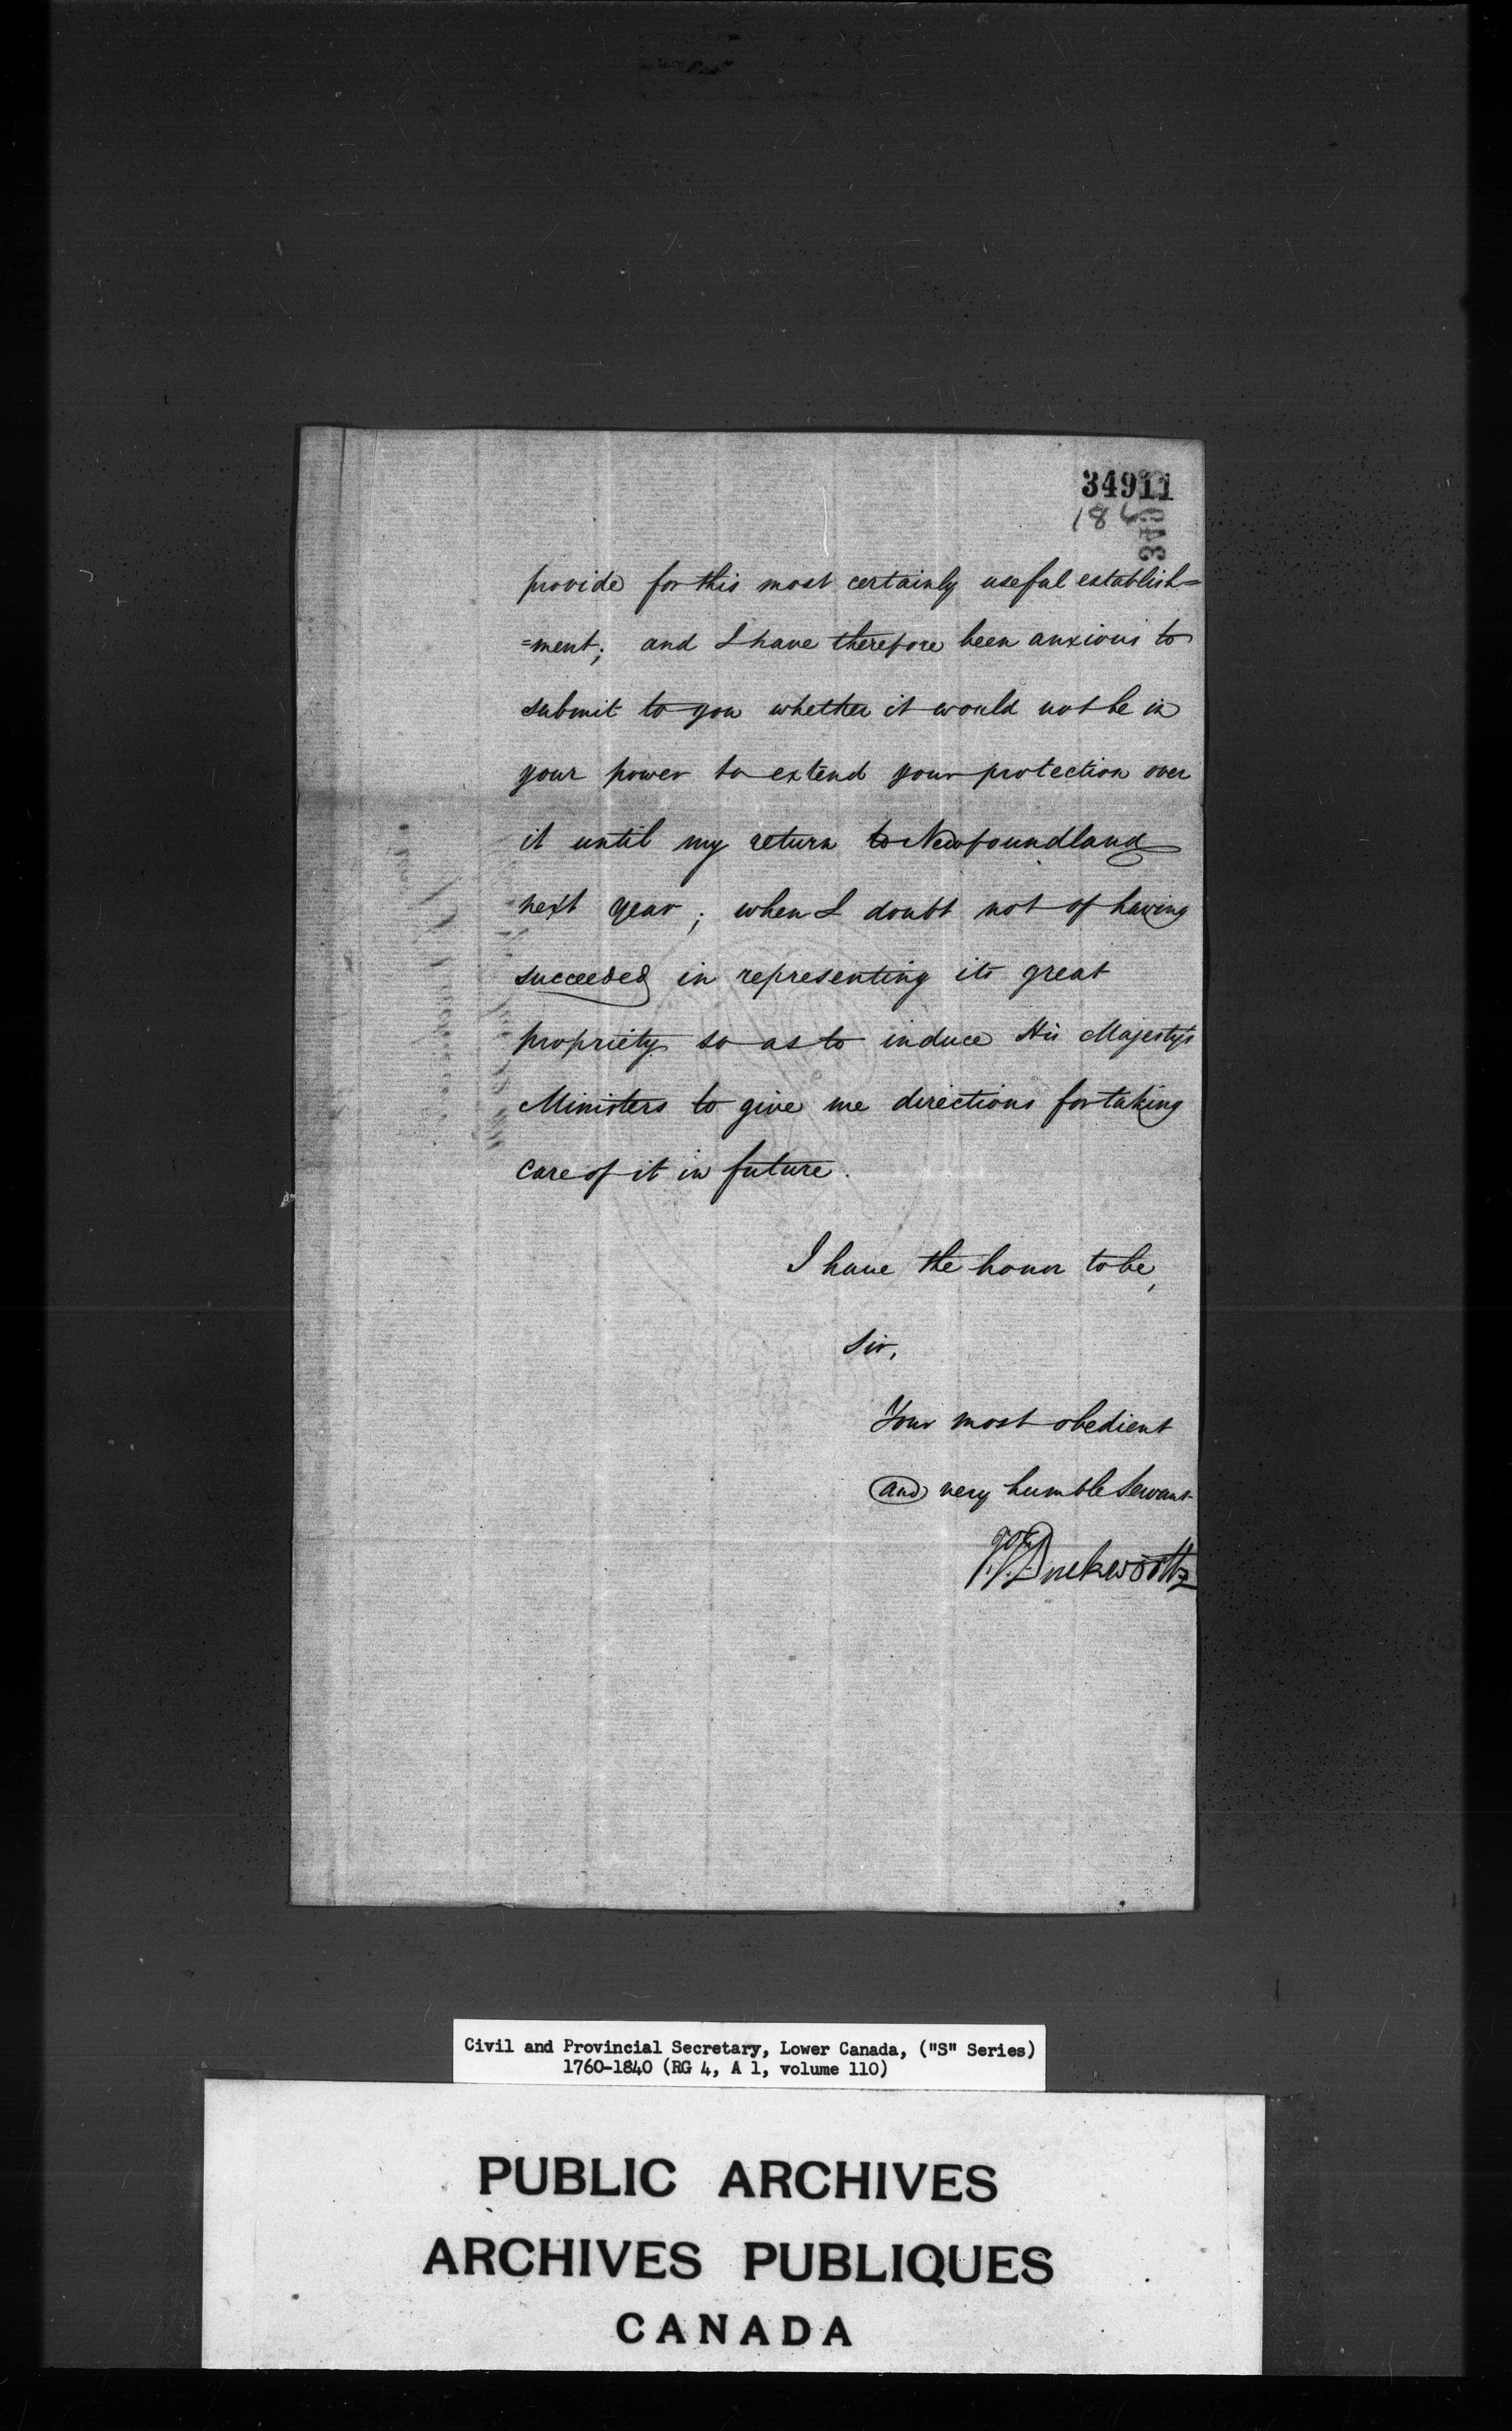 34911
provide for this most certainly useful establish=
=ment; and I have therefore been anxious to
submit to you whether it would not be in
your power to extend your protection over
it until my return to Newfoundland
next year; when I doubt not of having
succeeded in representing its great
propriety so as to induce His Majesty's
Ministers to give me directions for taking
care of it in future.
I have the honor to be,
Sir,
Your most obedient
and very humble Servant
J. T. Duckworth
Civil and Provincial Secretary, Lower Canada, ("S" Series)
1760-1840 (RG 4, A 1, volume 110)
PUBLIC ARCHIVES
ARCHIVES PUBLIQUES
CANADA